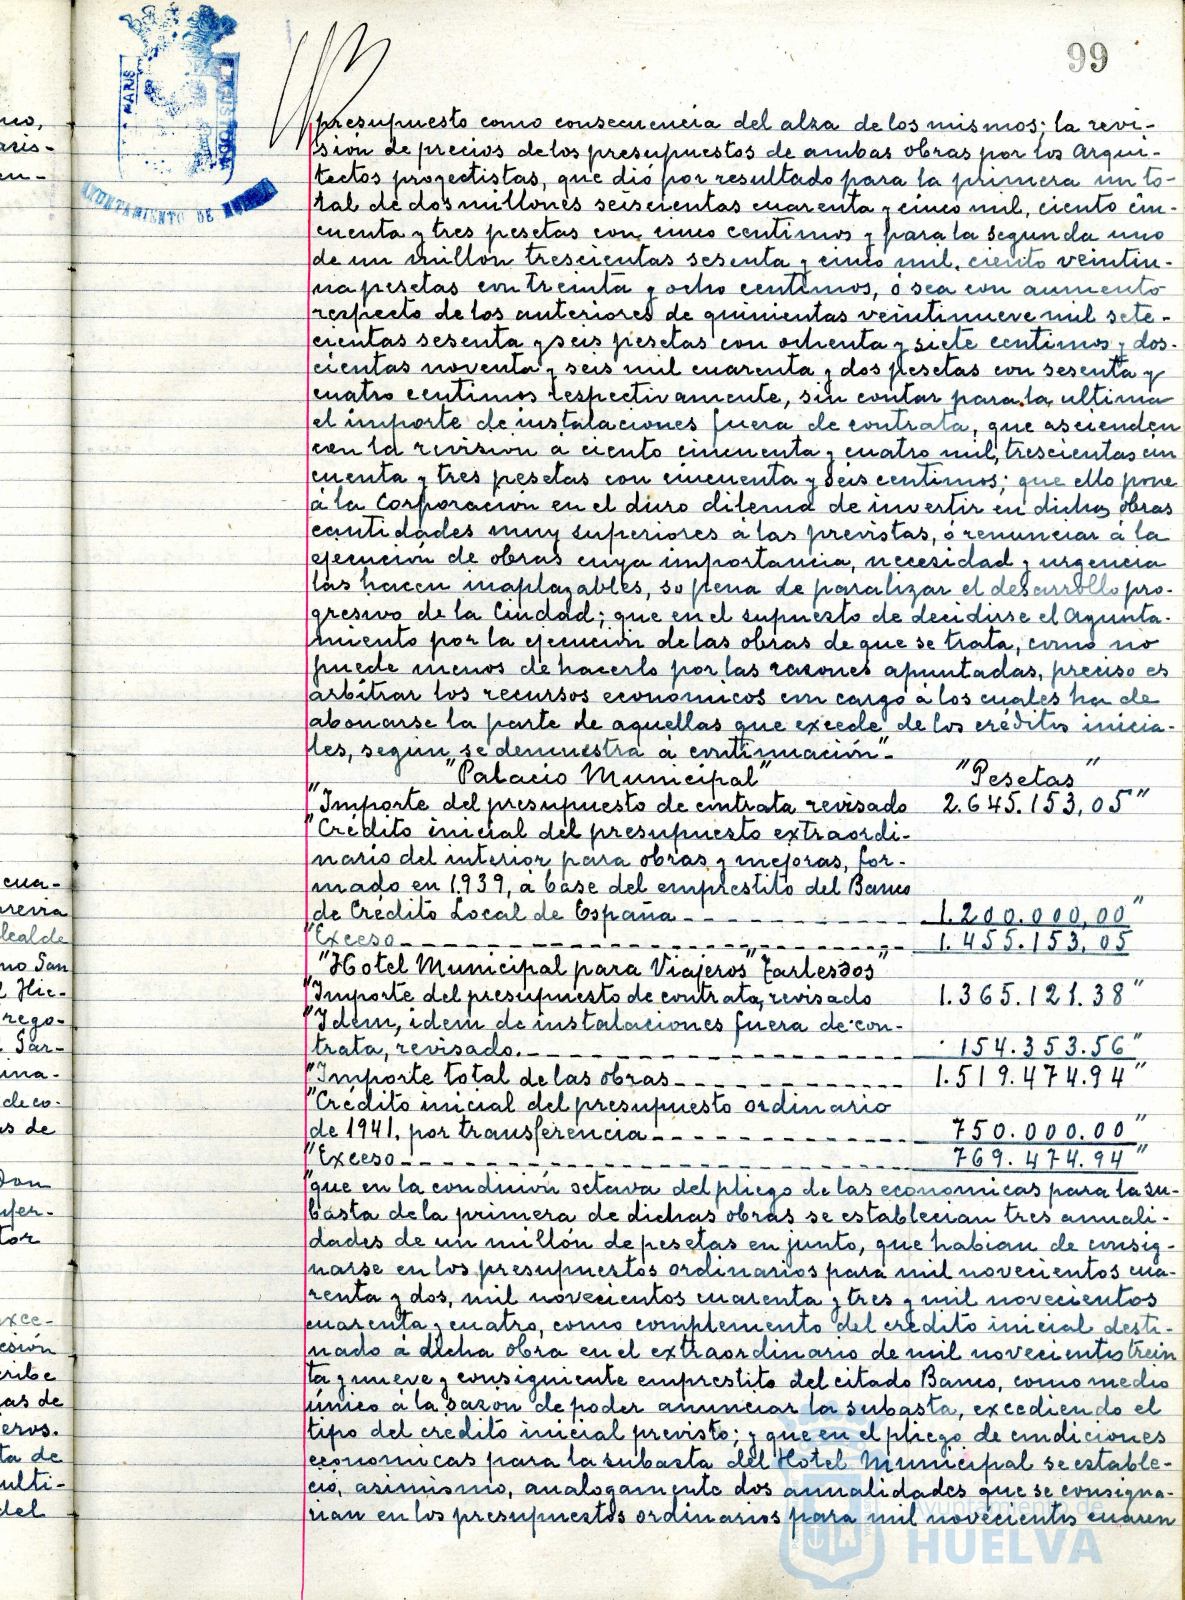 99
presupuesto como consecuencia del alza de los mismos; la revi-
sión de precios de los presupuestos de ambas obras por los Arqui-
tectos proyectistas, que dió por resultado para la primera un to-
tal de dos millones seiscientas cuarenta y cinco mil, ciento cin-
cuenta y tres pesetas con cinco centimos y para la segunda uno
de un millon trescientas sesenta y cinco mil, ciento veintiu-
na pesetas con treinta y ocho centimos, ó sea con aumento
respecto de los anteriores de quinientas veintinueve mil sete-
cientas sesenta y seis pesetas con ochenta y siete centimos y dos-
cientas noventa y seis mil cuarenta y dos pesetas con sesenta y
cuatro centimos respectivamente, sin contar para la ultima
el importe de instalaciones fuera de contrata, que ascienden
con la revision a ciento cincuenta y cuatro mil, trescientas cin
cuenta y tres pesetas con cincuenta y seis centimos; que ello pone
á la Corporación en el duro dilema de invertir en dichas obras
cantidades muy superiores á las previstas, ó renunciar á la
ejecución de obras cuya importancia, necesidad y urgencia
las hacen inaplazables, so pena de paralizar el desarrollo pro-
gresivo de la Ciudad; que en el supuesto de decidirse el Ayunta-
miento por la ejecución de las obras de que se trata, como no
puede menos de hacerlo por las razones apuntadas, preciso es
arbitrar los recursos economicos con cargo á los cuales ha de
abonarse la parte de aquellas que excede de los créditos inicia-
les, según se demuestra á continuación"-
"Palacio Municipal" "Pesetas"
"Importe del presupuesto de contrata revisado 2.645.153,05"
"Crédito inicial del presupuesto extraordi-
nario del interior para obras y mejoras, for-
mado en 1.939, á base del emprestito del Banco
de Crédito Local de España 1.200.000,00"
"Exceso 1.455.153,05
"Hotel Municipal para Viajeros"
"Importe del presupuesto de contrata, revisado 1.365.121.38"
"Idem, idem de instalaciones fuera de con-
trata, revisado. 154.353.56"
"Importe total de las obras 1.519.474.94"
"Crédito inicial del presupuesto ordinario
de 1941, por transferencia 750.000.00"
"Exceso 769.474.94"
"que en la condición octava del pliego de las economicas para la su-
basta de la primera de dichas obras se establecian tres anuali-
dades de un millón de pesetas en junto, que habian de consig-
narse en los presupuestos ordinarios para mil novecientos cua-
renta y dos, mil novecientos cuarenta y tres y mil novecientos
cuarenta y cuatro, como complemento del credito inicial desti-
nado á dicha obra en el extraordinario de mil novecientos trein
ta y nueve y consiguiente emprestito del citado Banco, como medio
único á la sazón de poder anunciar la subasta, excediendo el
tipo del credito inicial previsto; y que en el pliego de condiciones
economicas para la subasta del Hotel Municipal se estable-
ció, asimismo, analogamente dos anualidades que se consigna-
rian en los presupuestos ordinarios para mil novecientos cuaren
AYUNTAMIENTO DE HUELVA
Ayuntamiento de
HUELVA